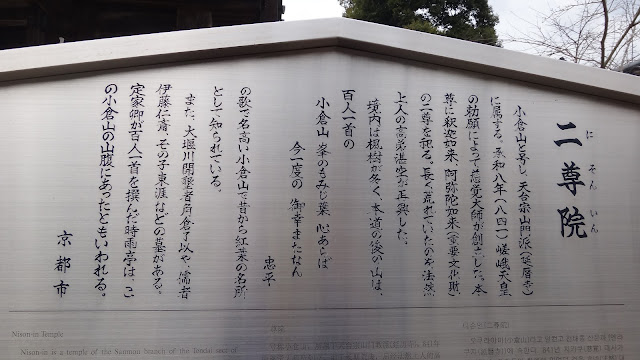 二尊院
に そん いん
小倉山と号し、天台宗山門派(延暦寺)
に属する。承和八年(八四一)嵯峨天皇
の勅願によって慈覚大師が創建した。本
尊に釈迦如来、阿弥陀如来(重要文化財)
の二尊を祀る。長く荒れていたのを法然
上人の高弟湛空が再興した。
境内は楓樹が多く、本道の後の山は、
百人一首の
小倉山 峯のもみじ葉 心あらは
今一度の 御幸またなん
忠平
の歌で名高い小倉山で昔から紅葉の名所
として知られている。
また、大堰川開鑿者角倉了以や、儒者
伊藤仁斎、その子東涯などの墓がある。
定家卿が百人一首を撰んだ時雨亭は、こ
の小倉山の山腹にあったともいわれる。
京都市
Nison-in Temple
Nison-in is a temple of the Sanmon branch of the Tendai sect of